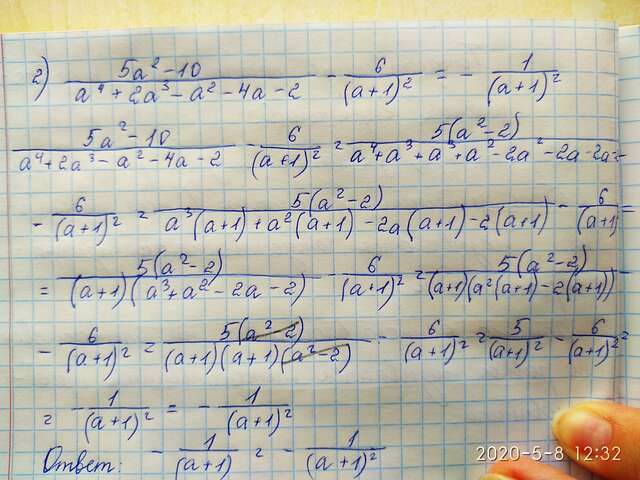 2) (5a² - 10)/(a⁴ + 2a³ - a² - 4a - 2) - 6/(a+1)² = - 1/(a+1)²
(5a² - 10)/(a⁴ + 2a³ - a² - 4a - 2) - 6/(a+1)² = 5(a² - 2)/(a⁴ + a³ + a³ + a² - 2a² - 2a - 2a -
- 6/(a+1)² = 5(a² - 2)/(a³(a+1) + a²(a+1) - 2a(a+1) - 2(a+1)) - 6/(a+1) =
= 5(a² - 2)/((a+1)(a³ + a² - 2a - 2)) - 6/(a+1)² = 5(a² - 2)/((a+1)(a²(a+1) - 2(a+1))) -
- 6/(a+1)² = 5(a² - 2)/((a+1)(a+1)(a² - 2)) - 6/(a+1)² = 5/(a+1)² - 6/(a+1)² =
= - 1/(a+1)² = - 1/(a+1)²
Ответ: - 1/(a+1) = - 1/(a+1)²
2020-5-8 12:32